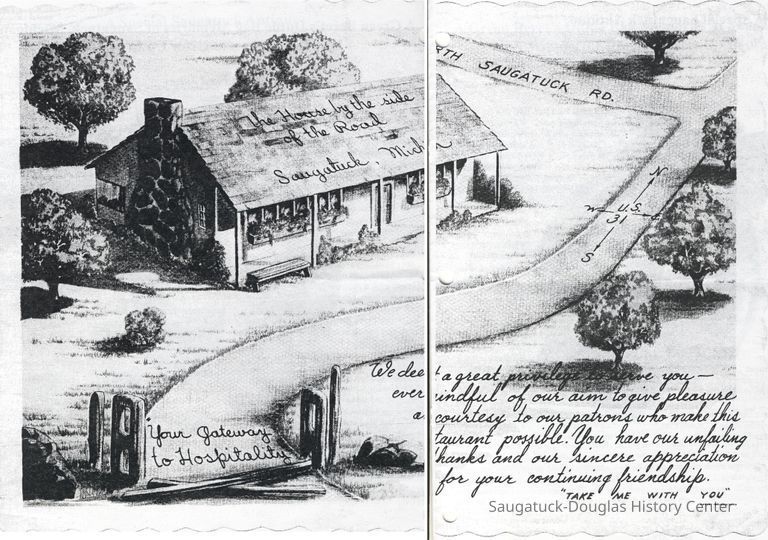 The House by the side
of the Road
Saugatuck, Mich
RTH SAUGATUCK RD.
N
W U.S. E
31
S
We dee a great privilege to serve you—
ever indful of our aim to give pleasure
a courtesy to our patrons who make this
taurant possible. You have our unfailing
hanks and our sincere appreciation
for your continuing friendship.
Your Gateway
to Hospitality
"TAKE ME WITH YOU"
Saugatuck-Douglas History Center